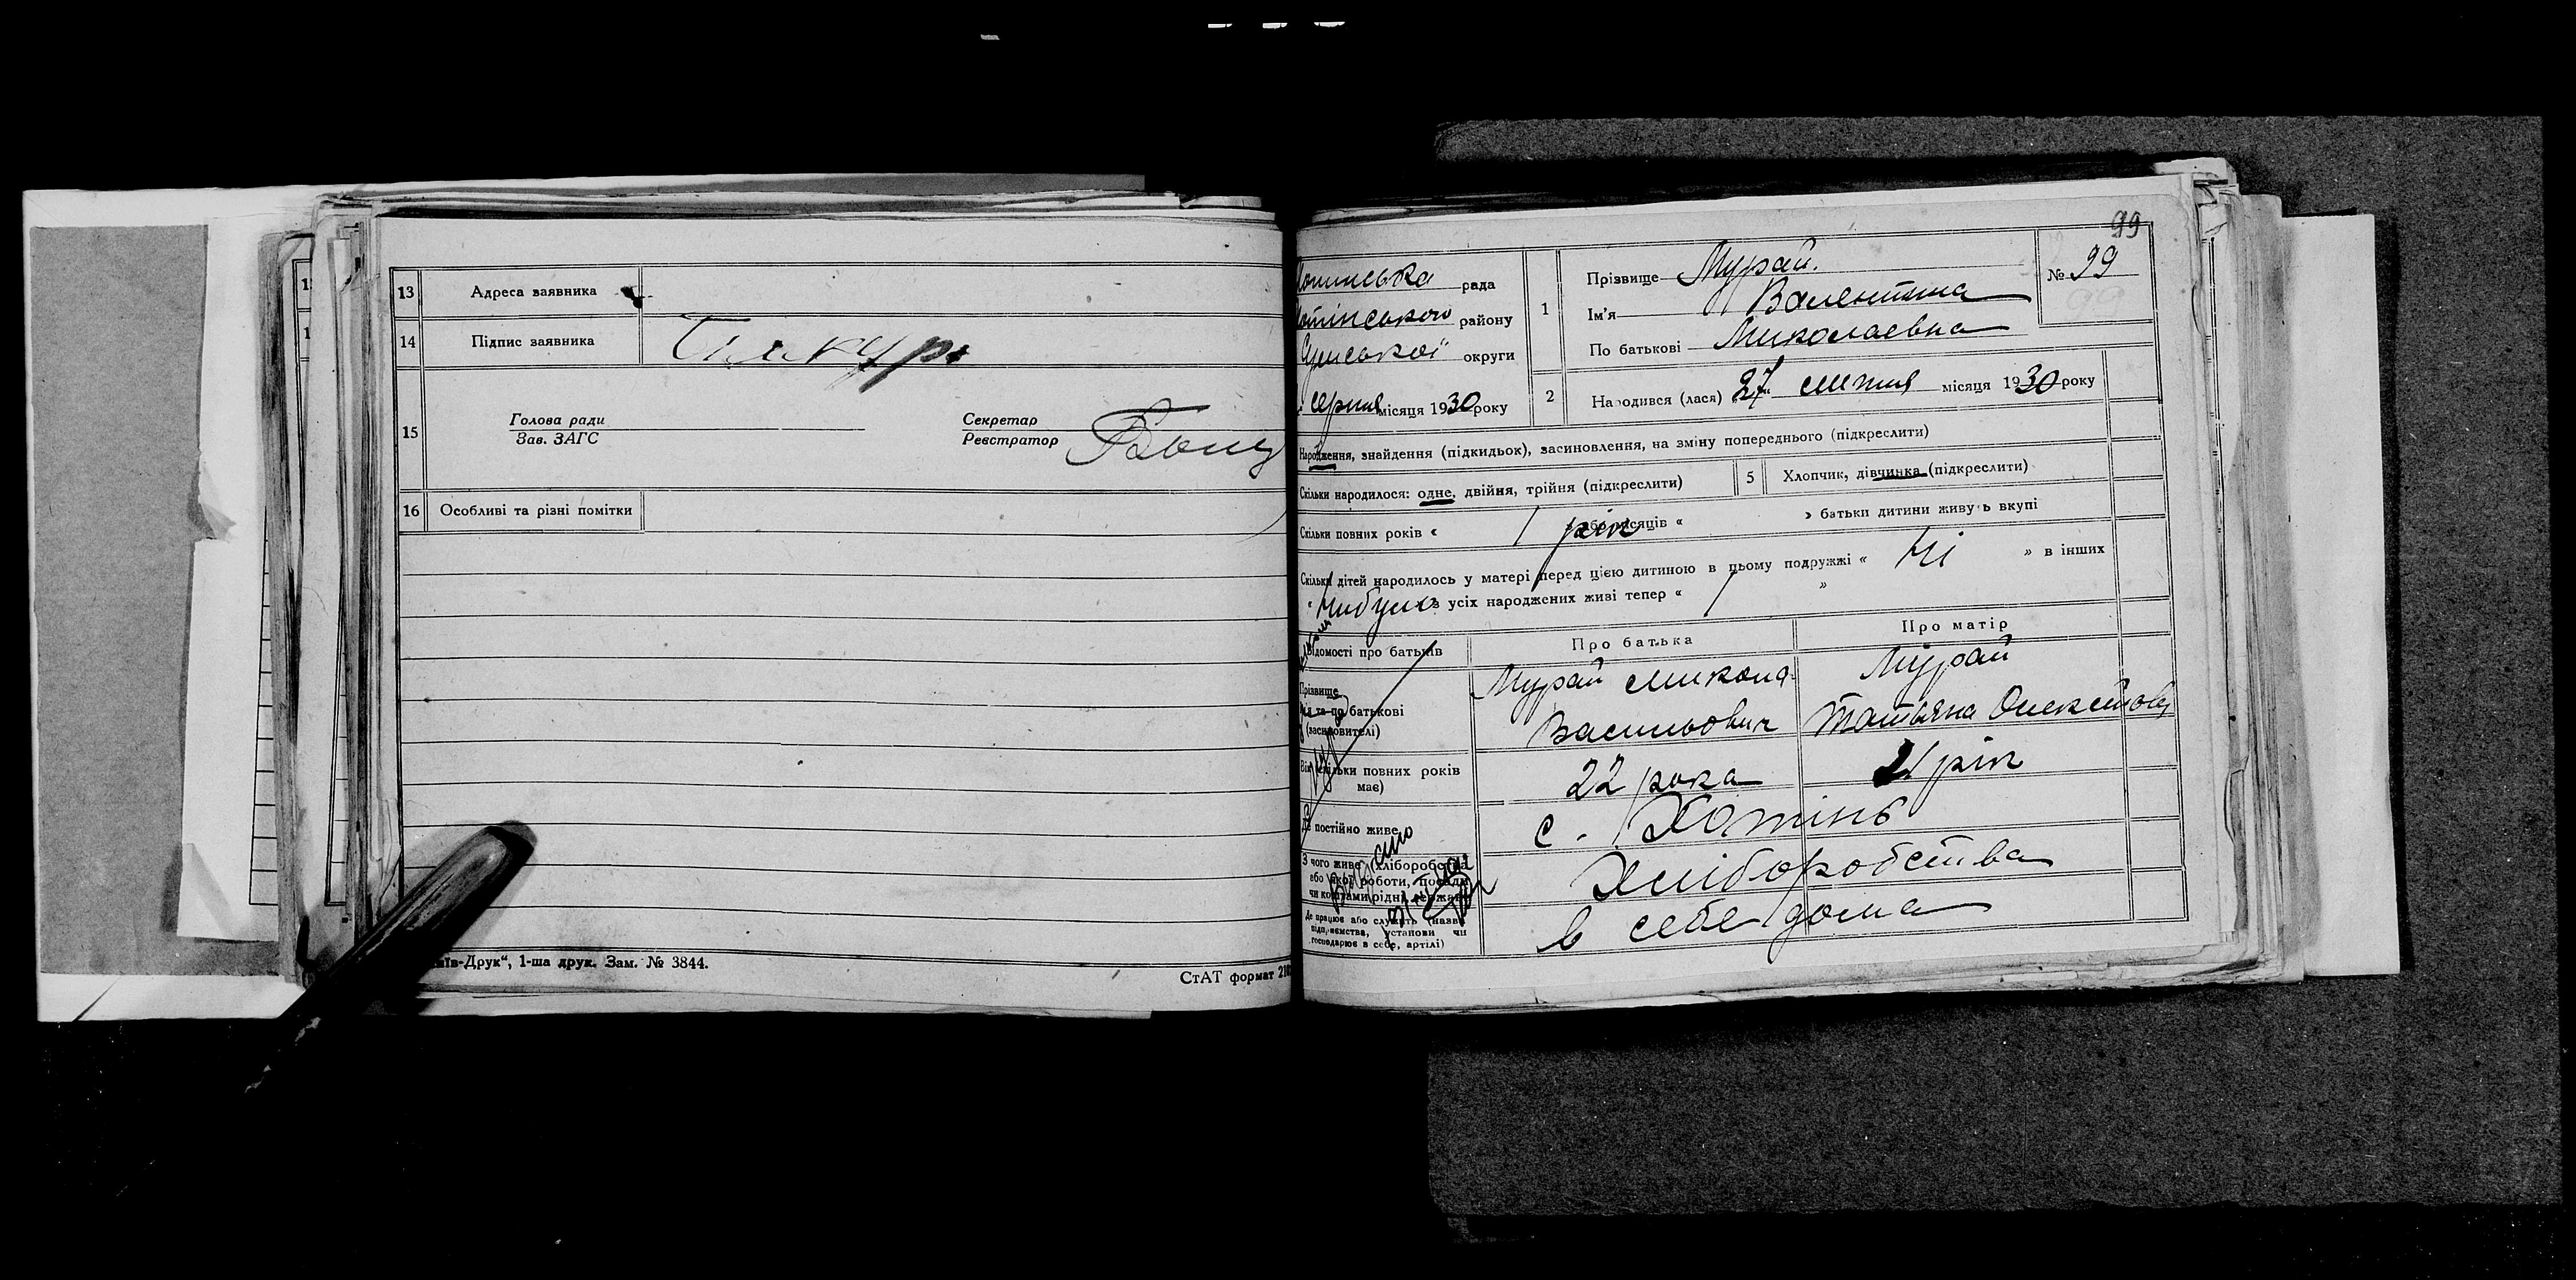 13 Адреса заявника
14 Підпис заявника
15 Голова ради
Зав. ЗАГС
Секретар
Реєстратор
16 Особливі та різні помітки
-Друк“, 1-ша друк. Зам. № 3844.
СтАТ формат
99
рада
району
Сумської округи
серпня місяця 1930 року
1 Прізвище Мурай.
Ім'я Валентина
По батькові Миколаевна
№ 99
2 Народився (лася) 27 липня місяця 1930 року
Народження, знайдення (підкидьок), засиновлення, на зміну попереднього (підкреслити)
Скільки народилося: одне, двійня, трійня (підкреслити)
5 Хлопчик, дівчинка (підкреслити)
Скільки повних років « 1 рік або місяців « » батьки дитини живуть вкупі
Скільки дітей народилось у матері перед цією дитиною в цьому подружжі « Ні » в інших
з усіх народжених живі тепер « »
Відомості про батьків
Про батька
Про матір
Прізвище
Ім'я та по батькові
(засновителі)
Мурай Микола
Васильович
Мурай
Татьяна
Вік (скільки повних років
має)
22 рока
21 рік
Де постійно живе
с. Хотінь
З чого живе (хліборобства
або якої роботи, посади
чи коштами рідні, держави
Хліборобства
Де працює або служить (назва
підприємства, установи чи
господарює в себе, артілі)
в себе дома